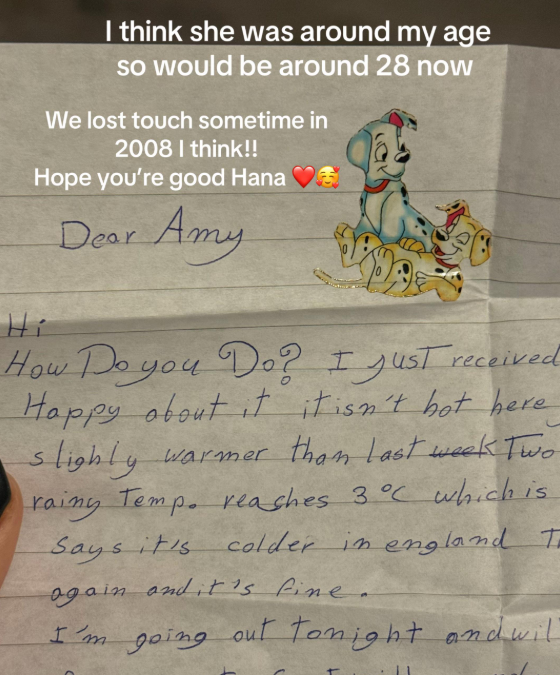 I think she was around my age
so would be around 28 now
We lost touch sometime in
2008 I think!!
Hope you're good Hana ❤️🥰
Dear Amy
Hi
How Do you Do? I just received
Happy about it it isn't hot here
slighly warmer than last week Two
rainy Temp. reaches 3 °C which is
says it's colder in england
again and it's fine.
I'm going out Tonight and